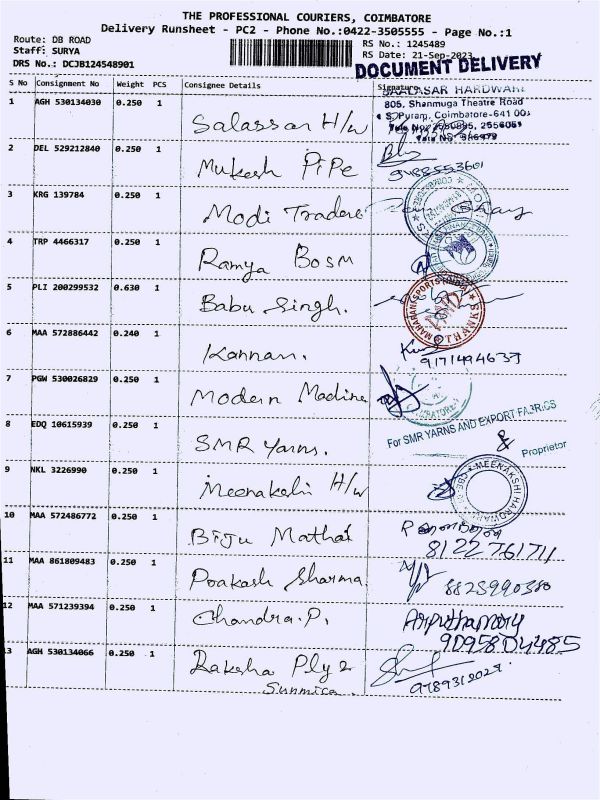 THE PROFESSIONAL COURIERS, COIMBATORE
Delivery Runsheet - PC2 - Phone No.:0422-3505555 - Page No.:1
Route: DB ROAD
Staff: SURYA
DRS No.: DCJB124548901
RS No.: 1245489
RS Date: 21-Sep-2023
DOCUMENT DELIVERY
S No Consignment No Weight PCS Consignee Details Signature
1 AGH 530134030 0.250 1 Salassar H/w
HARDWARE
805, Shanmuga Theatre Road
Coimbatore-641 001
2 DEL 529212840 0.250 1 Mukesh PiPe
9488553601
3 KRG 139784 0.250 1 Modi Traders
4 TRP 4466317 0.250 1 Ramya Bosm
5 PLI 200299532 0.630 1 Babu Singh.
MAHARANI SPORTS INDIA THANKS
6 MAA 572886442 0.240 1 Kannan.
9171494637
7 PGW 530026829 0.250 1 Modern Madina
8 EDQ 10615939 0.250 1 SMR Yarns.
For SMR YARNS AND EXPORT FABRICS
Proprietor
9 NKL 3226990 0.250 1 Meenakshi H/w
MEENAKSHI HARDWARE
10 MAA 572486772 0.250 1 Biju Mathai
8122761711
11 MAA 861809483 0.250 1 Poakash Sharma
8825990380
12 MAA 571239394 0.250 1 Chandra.P.
Arputhamary
9095804485
13 AGH 530134066 0.250 1 Raksha Ply 2
Sunmica.
9789312027